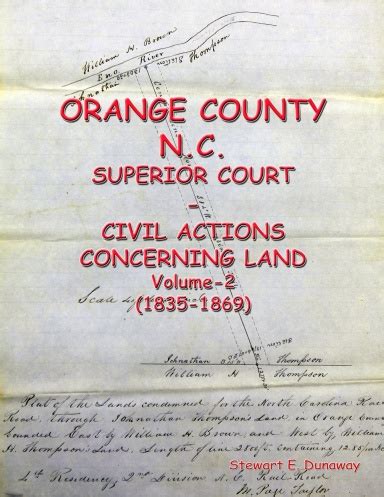 William H. Brown
Eno River
Johnathan Thompson
ORANGE COUNTY
N.C.
SUPERIOR COURT
-
CIVIL ACTIONS
CONCERNING LAND
Volume-2
(1835-1869)
Scale
Johnathan Thompson
William H Thompson
Plat of the Lands condemned for the North Carolina Rail
Road, through Johnathan Thompson's Land, in Orange County
bounded East by William H. Brown, and West by William
H. Thompson's Land. Length of line 2800 ft. Containing
4th Residency, 2nd Division N.C. Rail Road
Stewart E. Dunaway
M. Page Taylor